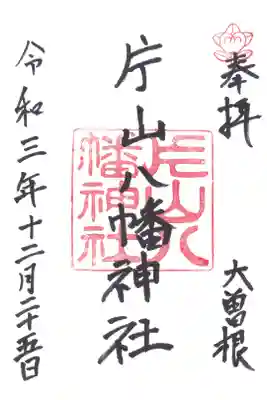 奉拝
大曽根
片山八幡神社
片山八
幡神社
令和三年十二月二十五日